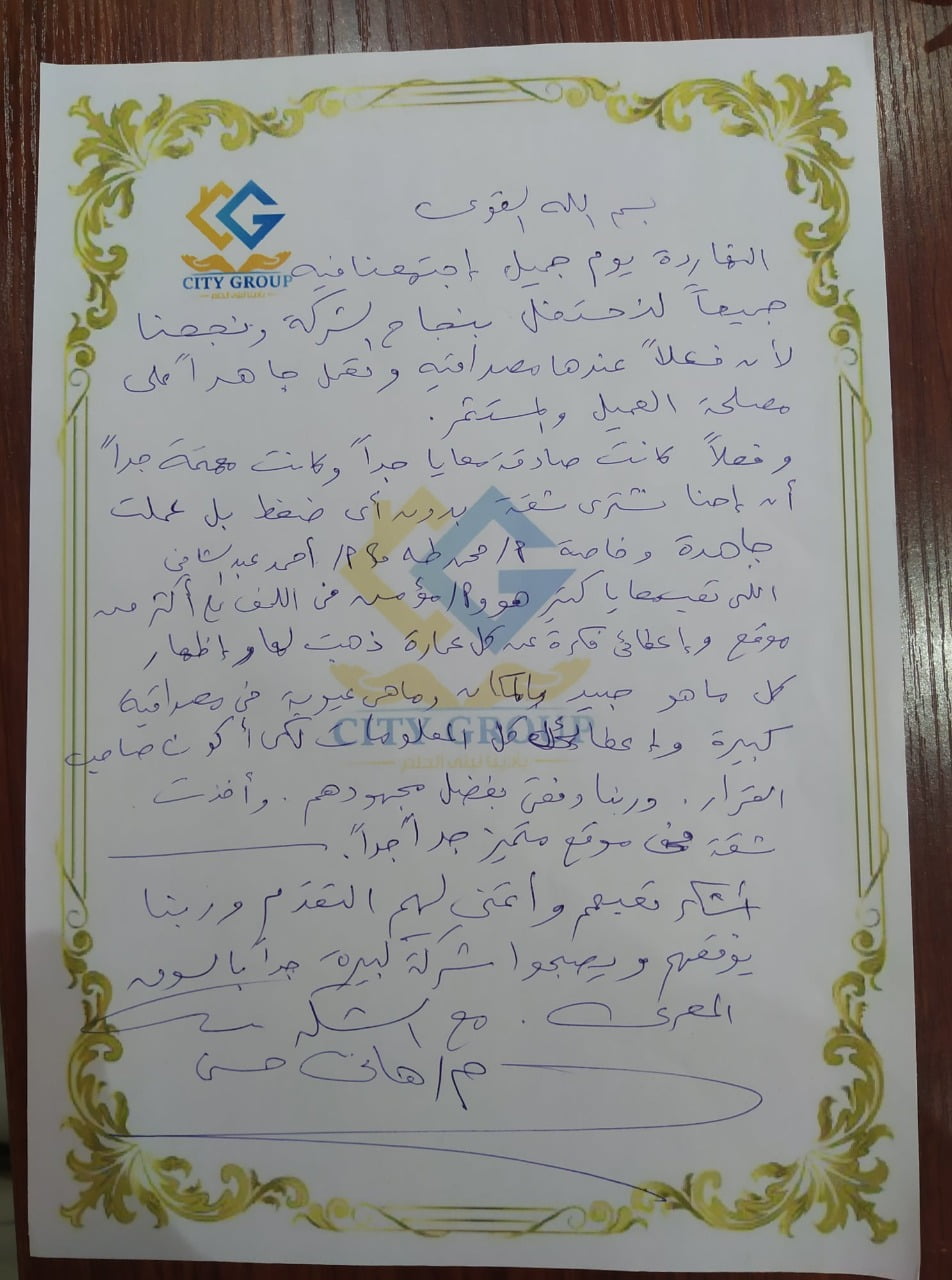 بسم الله القوى
CITY GROUP
النهاردة يوم جميل إجتمعنا فيه
جميعاً لنحتفل بنجاح الشركة ونجحنا
لأن فعلاً عندها مصداقيه وتعمل جاهداً على
مصلحة العميل والمستثمر .
وفعلاً كانت صادقة معايا جداً وكانت مهمة جداً
أن إحنا نشترى شقة بدون أى ضغط بل عملت
جاهدة وخاصة م/ محمد طه و م/ أحمد عبد الشافى
اللى تعب معايا كتير هو و م/ مؤمن فى اللف على أكثر من
موقع وإعطائى فكرة عن كل عمارة ذهبت لها وإظهار
كل ما هو جيد بالمكان وماهى عيوبة فى مصداقية
كبيرة وإعطائى كل المعلومات لكى أكون صاحب
القرار . وربنا وفقنى بفضل مجهودهم . وأخذت
شقة فى موقع متميز جداً جداً .
أشكر تعبهم وأتمنى لهم التقدم وربنا
يوفقهم ويصبحوا شركة كبيرة جداً بالسوق
المصرى . مع الشكر
م/ هانى حسن
CITY GROUP
بإدينا نبنى الحلم